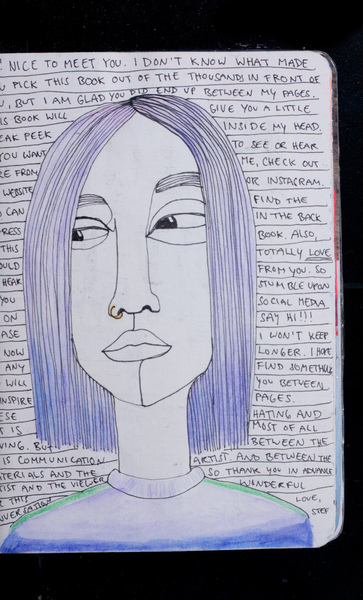 NICE TO MEET YOU. I DON'T KNOW WHAT MADE
PICK THIS BOOK OUT OF THE THOUSANDS IN FRONT OF
, BUT I AM GLAD YOU DID END UP BETWEEN MY PAGES.
IS BOOK WILL GIVE YOU A LITTLE
EAK PEEK INSIDE MY HEAD.
YOU WANT TO SEE OR HEAR
RE FROM ME, CHECK OUT
WEBSITE OR INSTAGRAM.
CAN FIND THE
RESS IN THE BACK
THIS BOOK. ALSO,
OULD TOTALLY LOVE
HEAR FROM YOU. SO
YOU STUMBLE UPON
ON SOCIAL MEDIA
ASE SAY HI!!!
NOW I WON'T KEEP
ANY LONGER. I HOPE
WILL FIND SOMETHING
YOU BETWEEN
INSPIRE PAGES.
ESE HATING AND
T IS MOST OF ALL
VING. BUT BETWEEN THE
IS COMMUNICATION ARTIST. AND BETWEEN THE
TERIALS AND THE SO THANK YOU IN ADVANCE
TIST AND THE VIEWER
THIS WONDERFUL
NVERSATION LOVE,
STEF